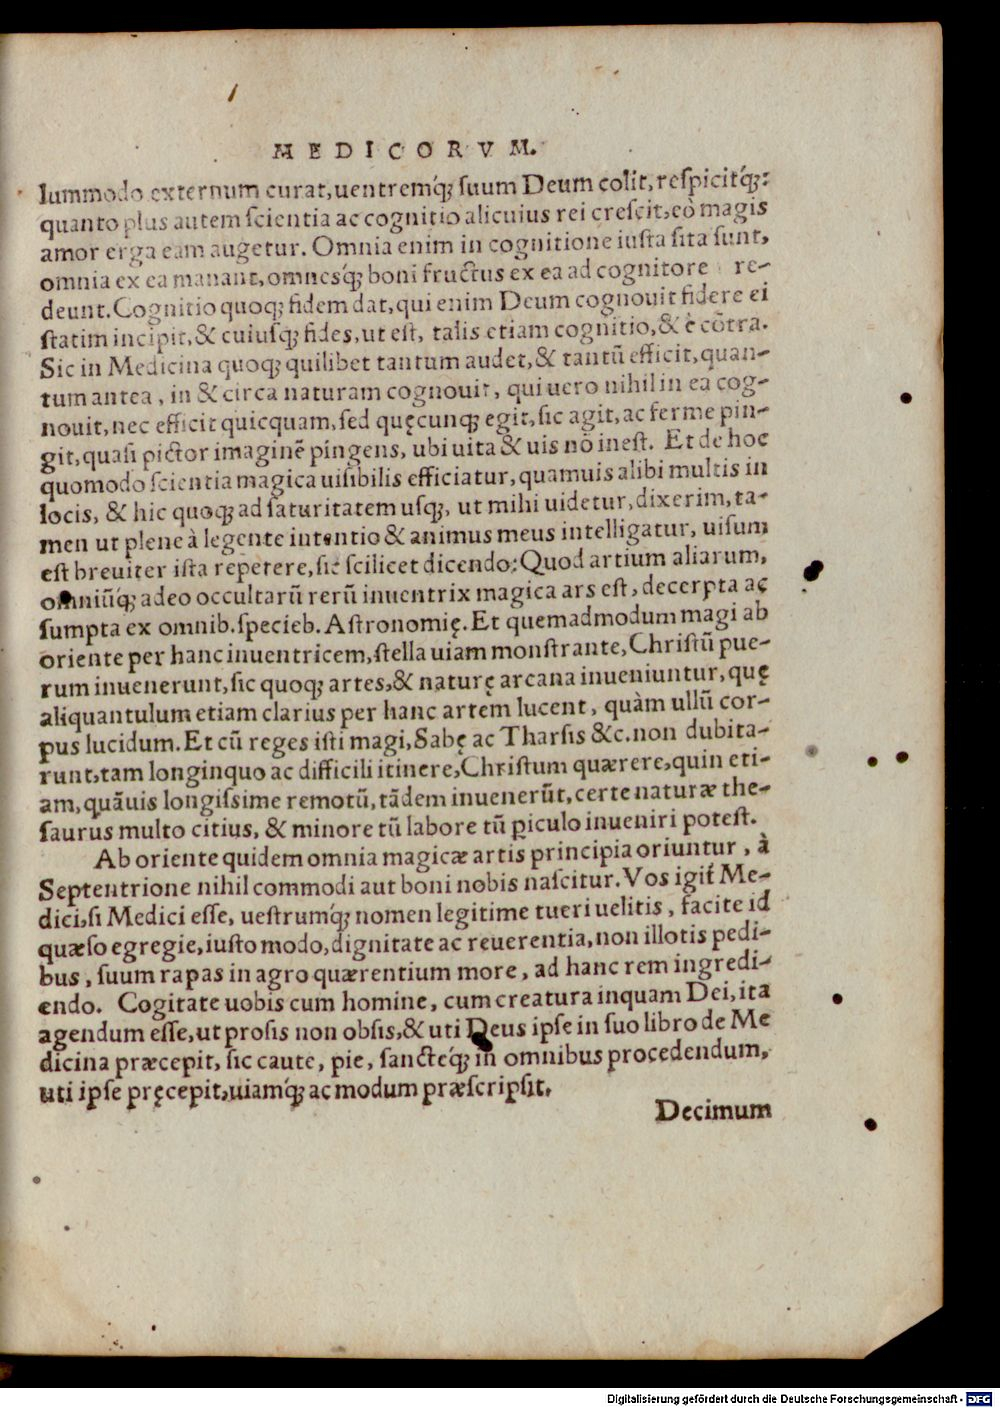 MEDICORVM.
lummodo externum curat, uentremq́; suum Deum colit, respicitq́;:
quanto plus autem scientia ac cognitio alicuius rei crescit, eò magis
amor erga eam augetur. Omnia enim in cognitione iusta sita sunt,
omnia ex ea manant, omnesq́; boni fructus ex ea ad cognitore re-
deunt. Cognitio quoq; fidem dat, qui enim Deum cognouit fidere ei
statim incipit, & cuiusq; fides, ut est, talis etiam cognitio, & è cōtra.
Sic in Medicina quoq; quilibet tantum audet, & tantū efficit, quan-
tum antea, in & circa naturam cognouit, qui uero nihil in ea cog-
nouit, nec efficit quicquam, sed quęcunq; egit, sic agit, ac ferme pin-
git, quasi pictor imaginē pingens, ubi uita & uis nō inest. Et de hoc
quomodo scientia magica uisibilis efficiatur, quamuis alibi multis in
locis, & hic quoq; ad saturitatem usq;, ut mihi uidetur, dixerim, ta-
men ut plene à legente intentio & animus meus intelligatur, uisum
est breuiter ista repetere, sic scilicet dicendo: Quod artium aliarum,
omniūq́; adeo occultarū rerū inuentrix magica ars est, decerpta ac
sumpta ex omnib. specieb. Astronomię. Et quemadmodum magi ab
oriente per hanc inuentricem, stella uiam monstrante, Christū pue-
rum inuenerunt, sic quoq; artes, & naturę arcana inueniuntur, quę
aliquantulum etiam clarius per hanc artem lucent, quàm ullū cor-
pus lucidum. Et cū reges isti magi, Sabę ac Tharsis &c. non dubita-
runt, tam longinquo ac difficili itinere, Christum quærere, quin eti-
am, quāuis longissime remotū, tādem inuenerūt, certe naturæ the-
saurus multo citius, & minore tū labore tū ꝑiculo inueniri potest.
Ab oriente quidem omnia magicæ artis principia oriuntur, à
Septentrione nihil commodi aut boni nobis nascitur. Vos igit́ Me-
dici, si Medici esse, uestrumq́; nomen legitime tueri uelitis, facite id
quæso egregie, iusto modo, dignitate ac reuerentia, non illotis pedi-
bus, suum rapas in agro quærentium more, ad hanc rem ingredi-
endo. Cogitate uobis cum homine, cum creatura inquam Dei, ita
agendum esse, ut prosis non obsis, & uti Deus ipse in suo libro de Me
dicina præcepit, sic caute, pie, sancteq́; in omnibus procedendum,
uti ipse pręcepit, uiamq́; ac modum præscripsit,
Decimum
Digitalisierung gefördert durch die Deutsche Forschungsgemeinschaft - DFG